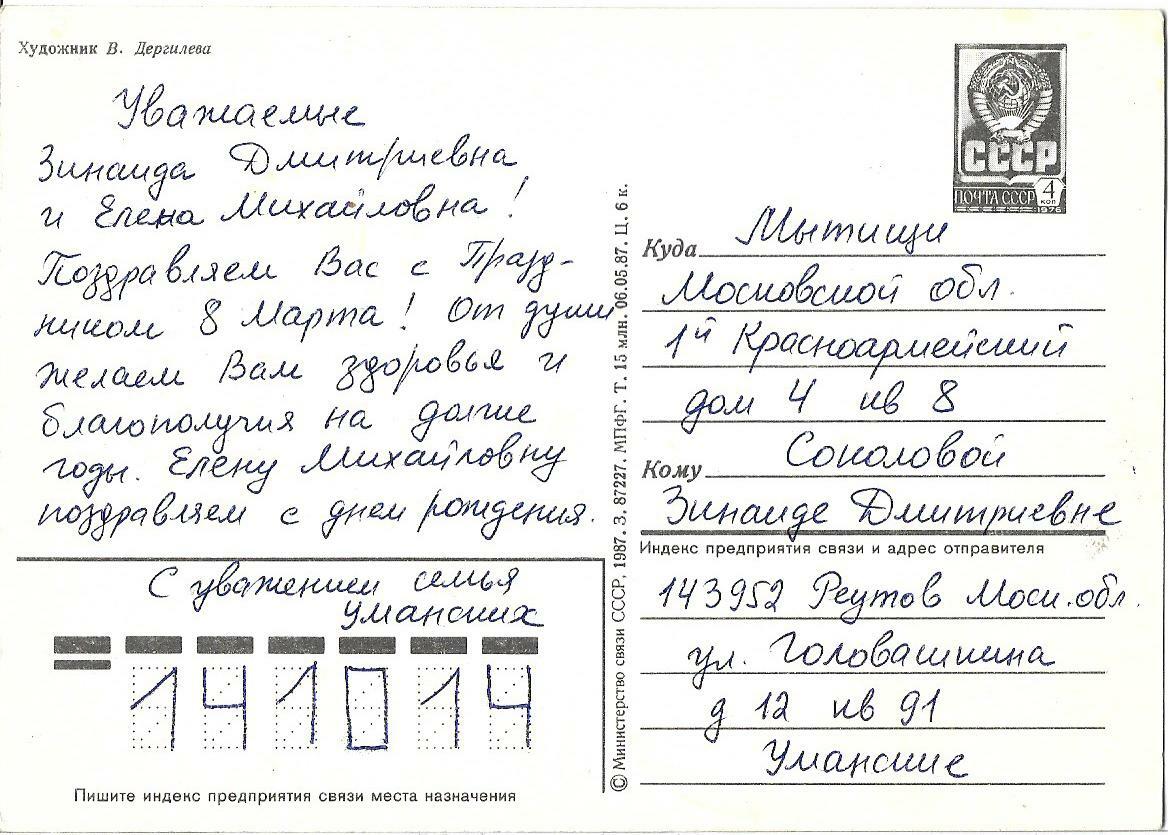 Художник В. Дергилева
Уважаемые
Зинаида Дмитриевна
и Елена Михайловна!
Поздравляем Вас с Празд-
ником 8 Марта! От души
желаем Вам здоровья и
благополучия на долгие
годы. Елену Михайловну
поздравляем с днем рождения.
С уважением семья
Уманских
141014
Пишите индекс предприятия связи места назначения
© Министерство связи СССР, 1987. З. 87227. МПФГ. Т. 15 млн. 06.05.87. Ц. 6 к.
СССР
ПОЧТА СССР
4
КОП
1976
Куда Мытищи
Московской обл.
1й Красноармейский
дом 4 кв 8
Кому Соколовой
Зинаиде Дмитриевне
Индекс предприятия связи и адрес отправителя
143952 Реутов Моск.обл.
ул. Головашкина
д 12 кв 91
Уманские